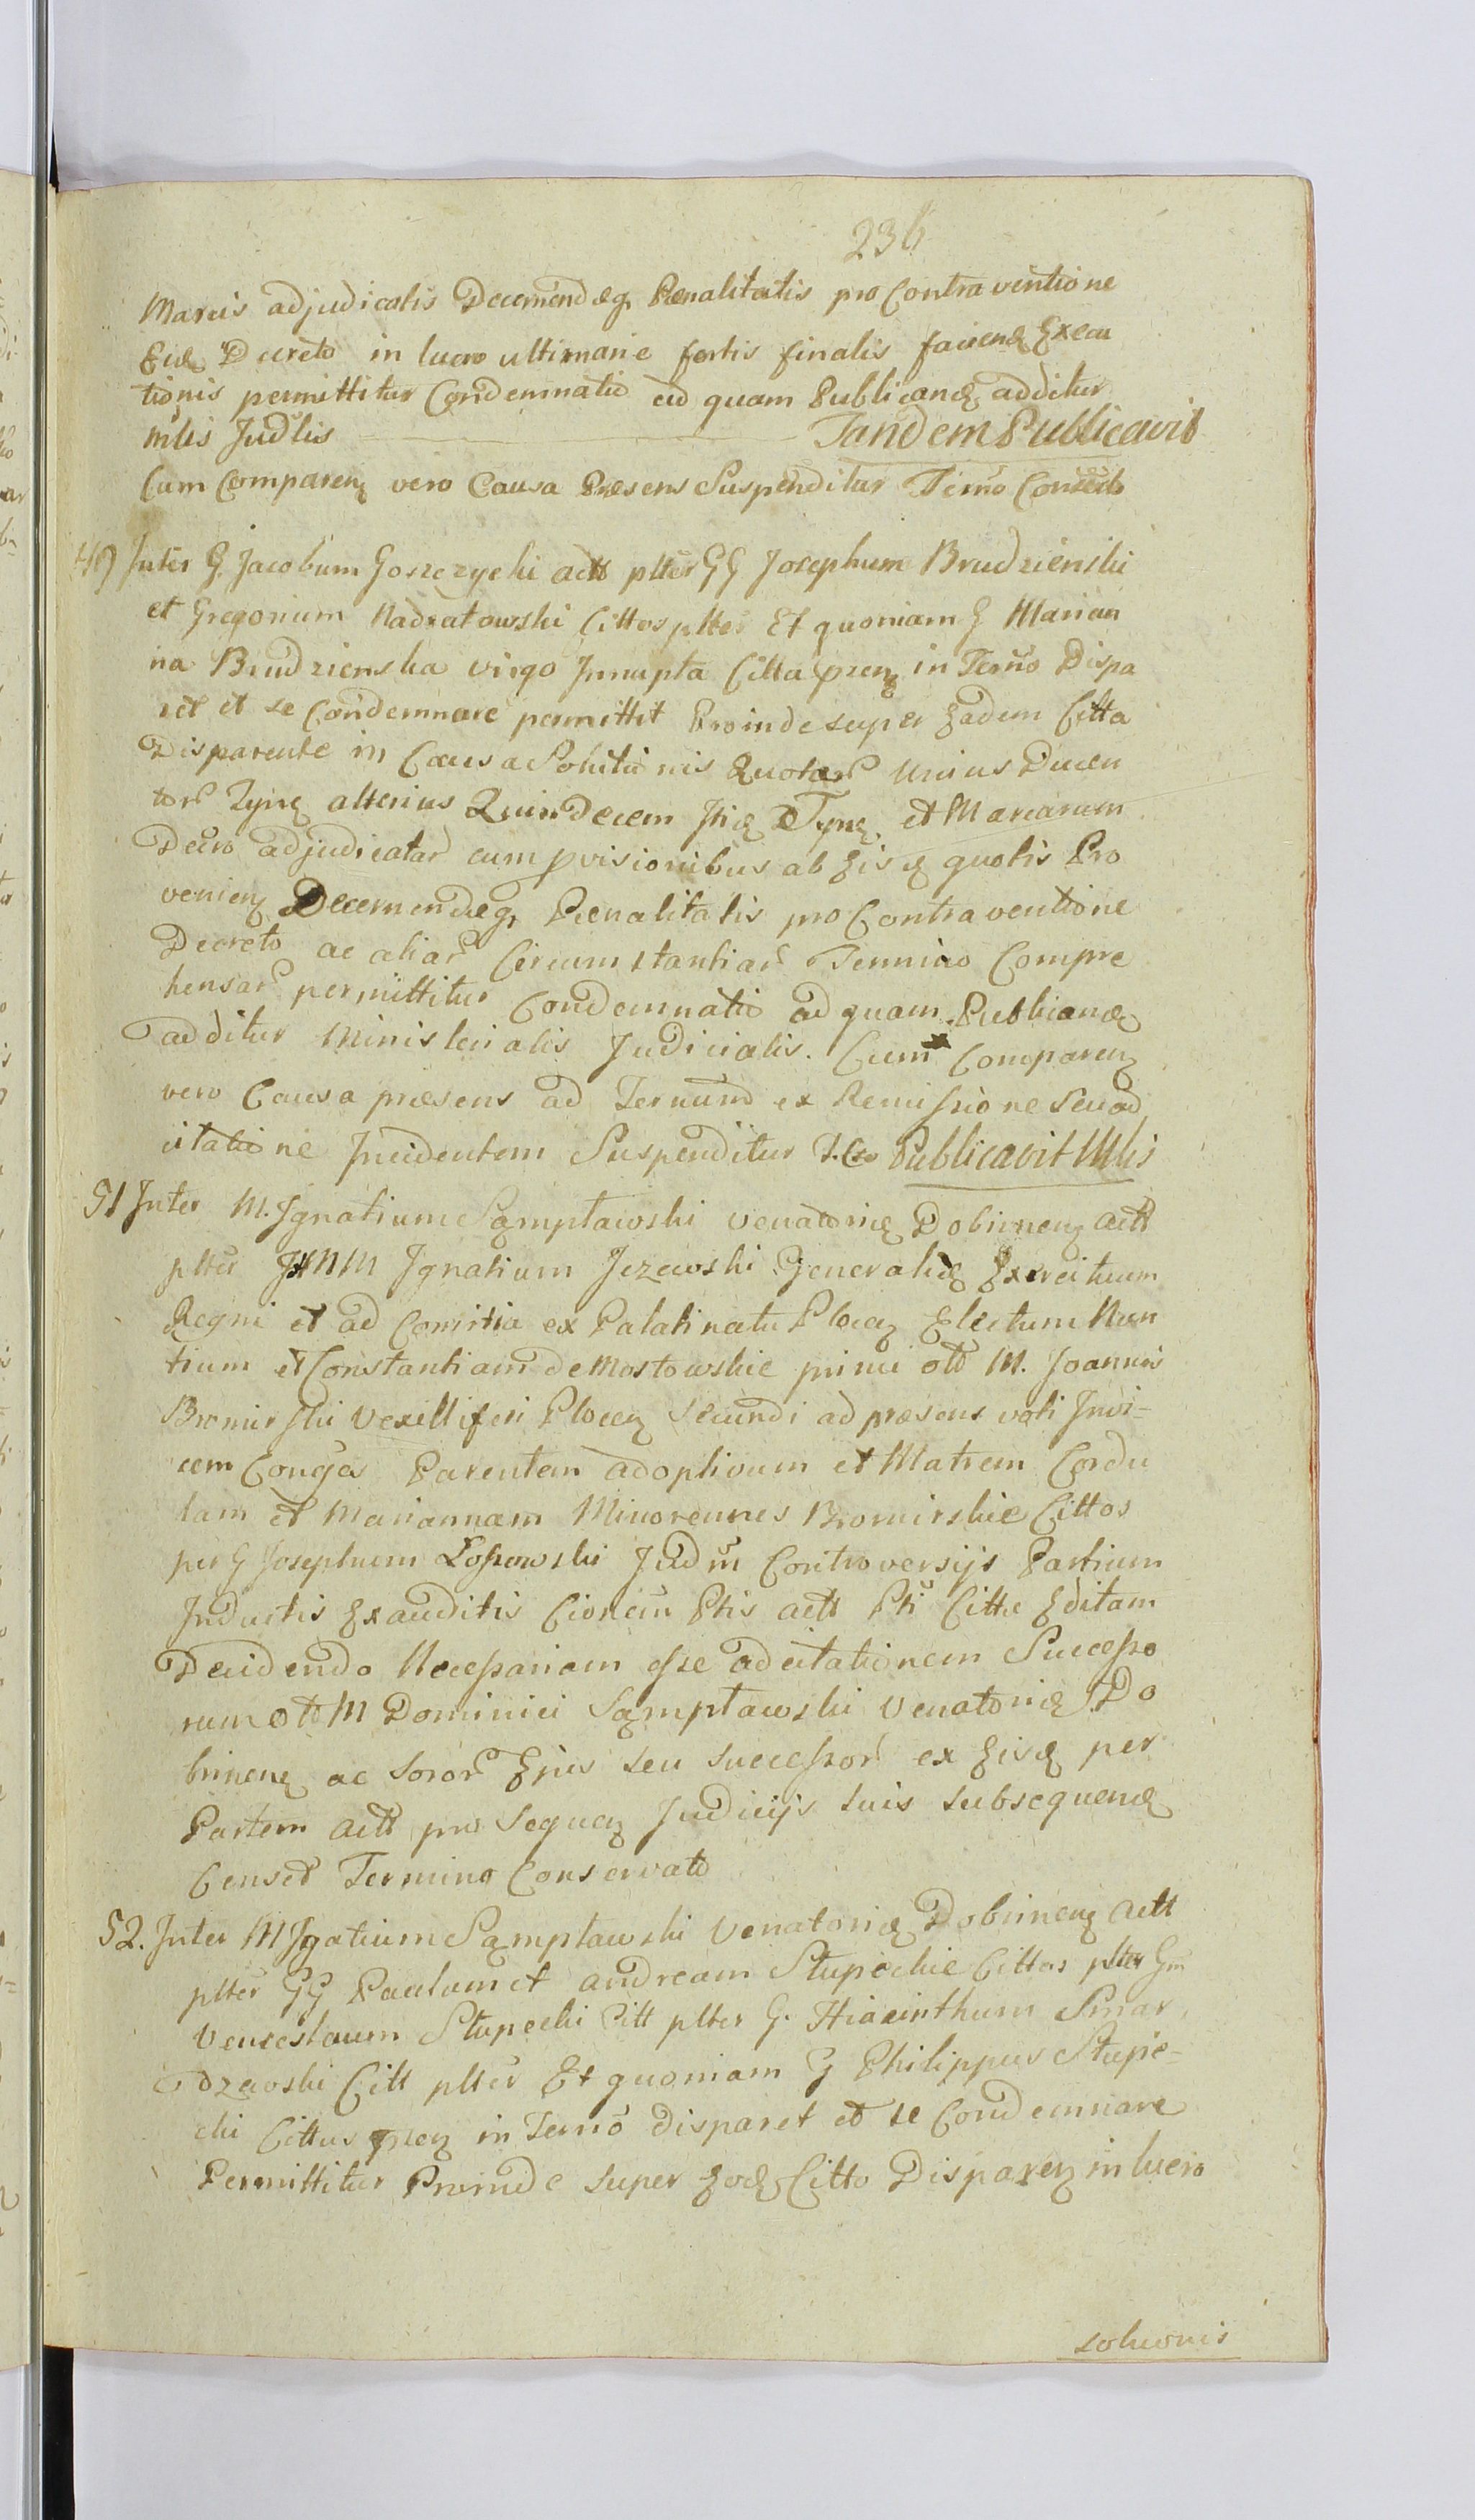 236
Marcis adjudicatis Decernendæq Pœnalitatis pro Contraventione
Eid Decreto in lucro ultimarie fortis finalis faciend Execu
tionis permittitur Condemnatio ad quam Publicand additur
Mlis Judlis Tandem Publicavit
Cum Comparen vero Causa Præsens Suspenditur Termo Conserto
49 Inter G. Jacobum Goszczycki actt plter GG Josephum Brudzienski
et Gregorium Nadratowski Cittos plter Et quoniam G Marian
na Brudzienska virgo Innupta Citta pren in Termo Dispa
ret et se Condemnare permittit Proinde super Eadem Citta
Disparente in Causa Solutionis Quotar unius Ducen
tor Tyn alterius Quindecem Hic Tyn et Marcarum
Decro adjudicatar cum pvisionibus ab Eisd quotis Pro
venien Decernendæq Pœnalitatis pro Contraventione
Decreto ac aliar Circumstantiar Termino Compre
hensar permittitur Condemnatio ad quam Publicand
additur Ministerialis Judicialis. Cum Comparen
vero Causa præsens ad Termum ex Remissione seu ad
citatione Incidentem Suspenditur T. Co Publicavit Mlis
51 Inter M. Ignatium Sąmpławski Venatorid Dobrinen actt
plter MM Ignatium Jezewski Generalid Exercituum
Regni et ad Comitia ex Palatinatu Plocen Electum Nun
tium et Constantiam de Mostowskie primi ott M. Joannis
Bromirski Vexilliferi Plocen secundi ad præsens voti Invi-
cem Conges Parentem adoptivum et Matrem Cordu
lam et Mariannam Minorennes Bromirskie Cittos
per G Josephum Lossowski Jud in Controversijs Partium
Inductis Exauditis Cionem Ptis actt Pti Citte Editam
Decidendo Necessariam esse adcitationem Successo
rum ott M Dominici Sąmpławski Venatorid Do
brinen ac Soror Ejus seu successor ex Eisd per
Partem actt pro Sequen Judicijs suis subsequend
Censet Termino Conservato
52. Inter M Igatium Sąmpławski Venatorid Dobrinen actt
plter GG Paulum et andream Stupeckie Cittos plter Gm
Venceslaum Stupecki Citt plter G. Hiacinthum Smar
dzewski Citt plter Et quoniam G Philippus Stupe-
cki Cittus pren in Termo disparet et se Condemnare
Permittitur Proinde super Eod Citto Disparen in lucro
solucionis